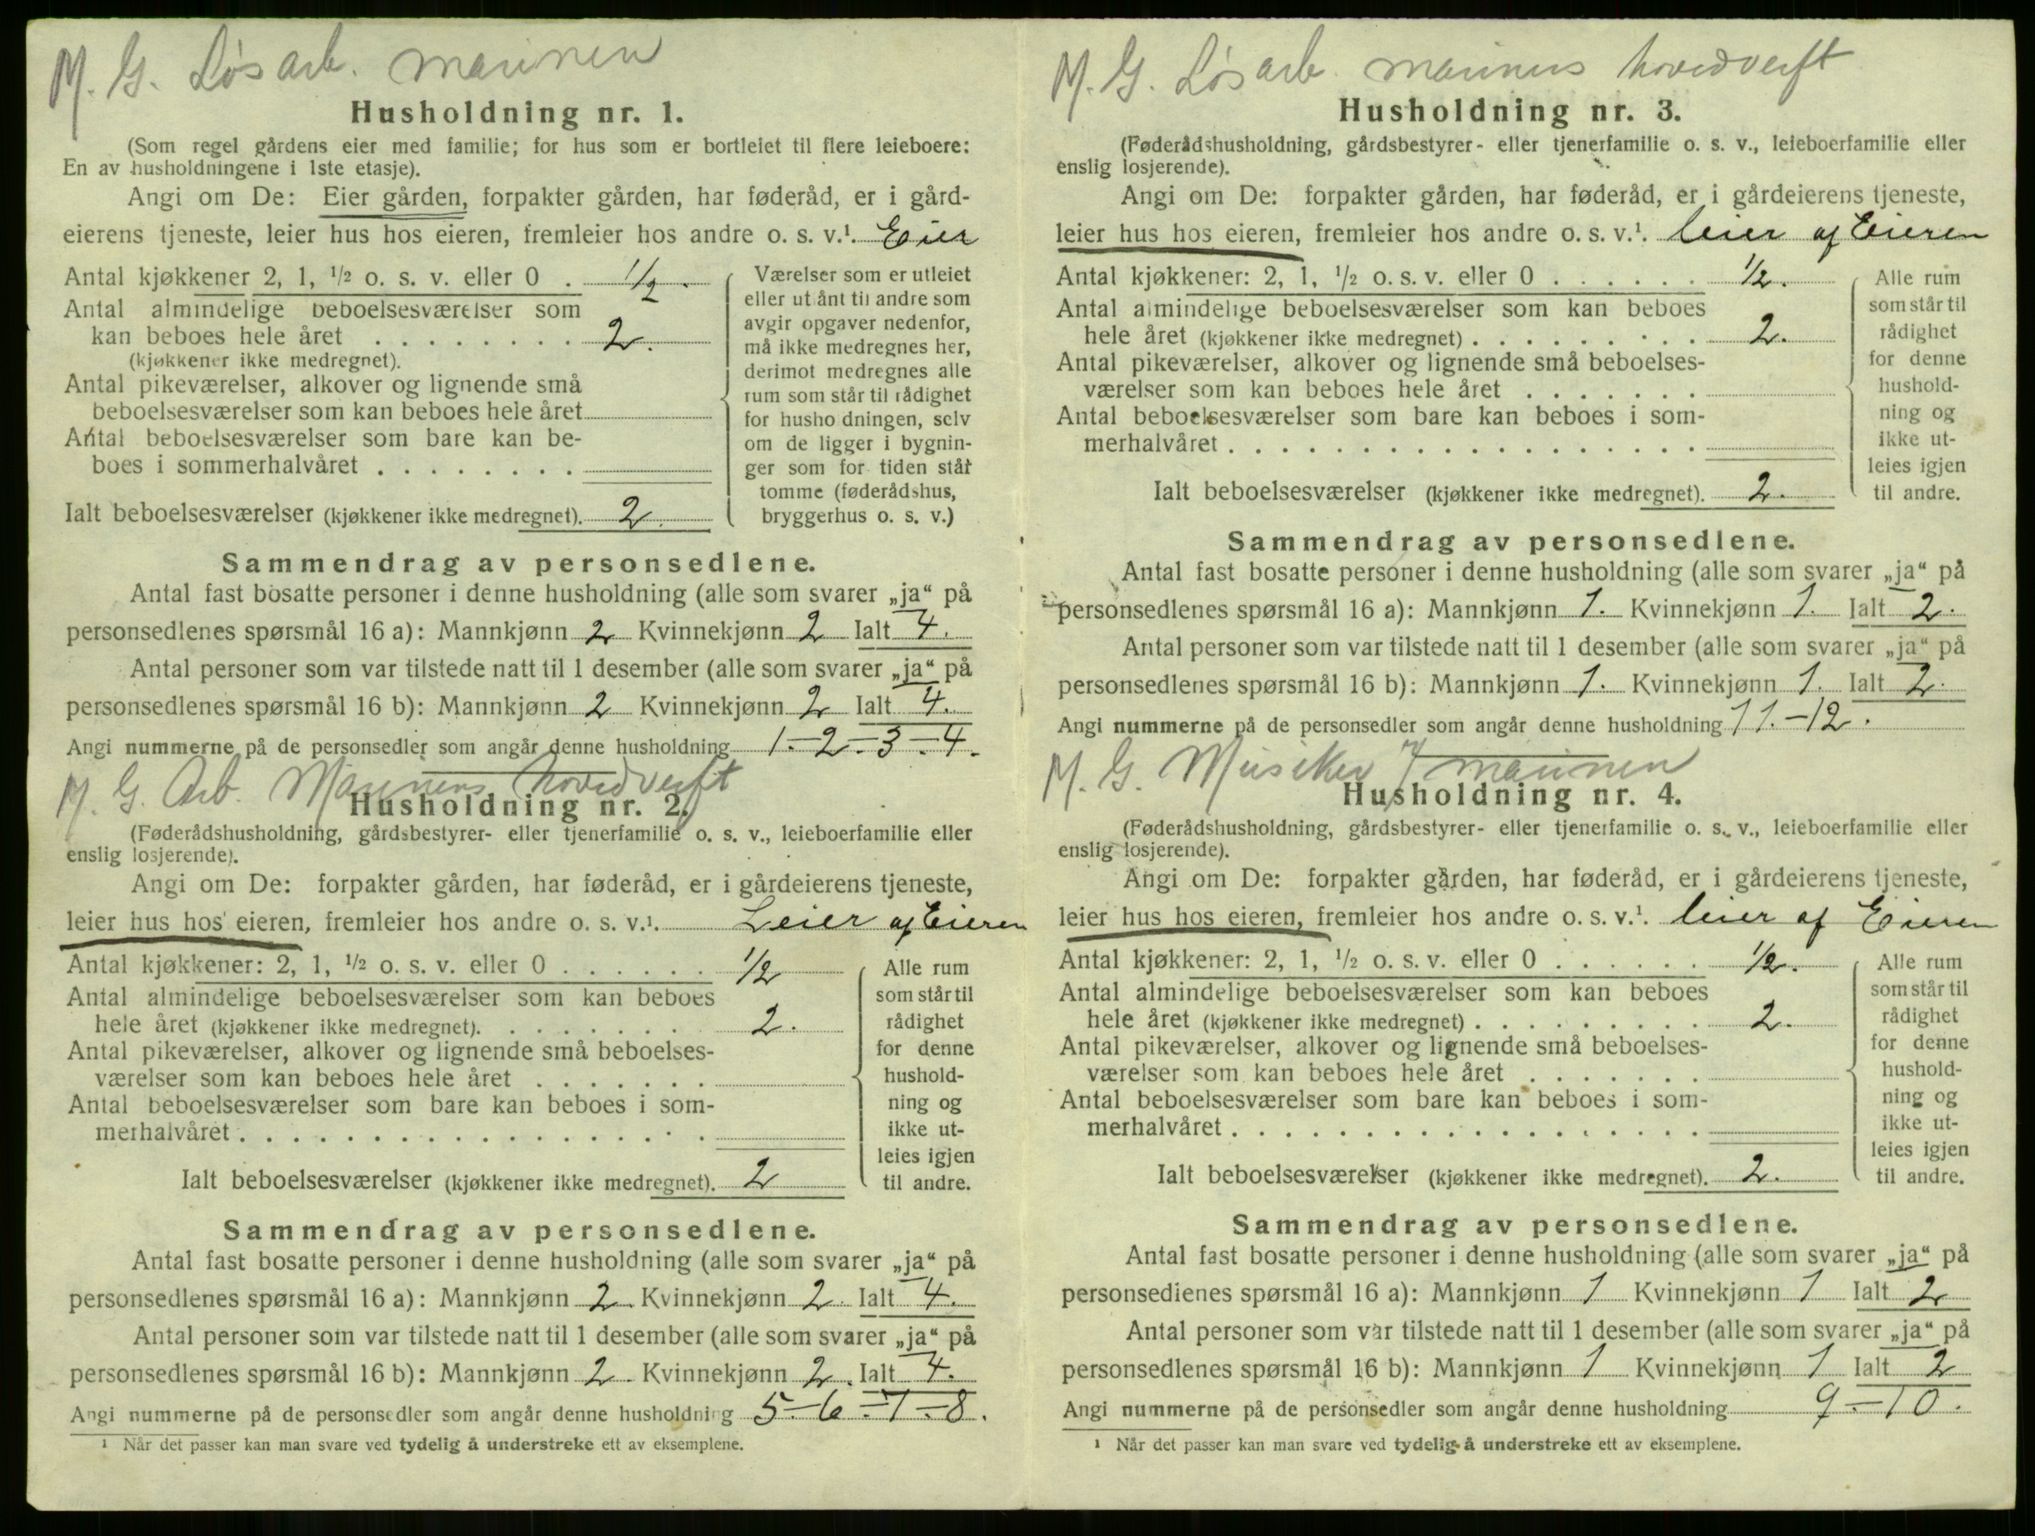 M. G. Løsarb. marinen
Husholdning nr. 1.
(Som regel gårdens eier med familie; for hus som er bortleiet til flere leieboere:
En av husholdningene i 1ste etasje).
Angi om De: Eier gården, forpakter gården, har føderåd, er i gård-
eierens tjeneste, leier hus hos eieren, fremleier hos andre o. s. v.¹. Eier
Antal kjøkkener 2, 1, ½ o. s. v. eller 0 . ½.
Antal almindelige beboelsesværelser som
kan beboes hele året . . . . . . . . . 2.
(kjøkkener ikke medregnet).
Antal pikeværelser, alkover og lignende små
beboelsesværelser som kan beboes hele året
Antal beboelsesværelser som bare kan be-
boes i sommerhalvåret . . . . . . . .
Ialt beboelsesværelser (kjøkkener ikke medregnet). 2.
Værelser som er utleiet
eller utlånt til andre som
avgir opgaver nedenfor,
må ikke medregnes her,
derimot medregnes alle
rum som står til rådighet
for husholdningen, selv
om de ligger i bygnin-
ger som for tiden står
tomme (føderådshus,
bryggerhus o. s. v.)
Sammendrag av personsedlene.
Antal fast bosatte personer i denne husholdning (alle som svarer „ja“ på
personsedlenes spørsmål 16 a): Mannkjønn 2 Kvinnekjønn 2 Ialt 4.
Antal personer som var tilstede natt til 1 desember (alle som svarer „ja“ på
personsedlenes spørsmål 16 b): Mannkjønn 2 Kvinnekjønn 2 Ialt 4.
Angi nummerne på de personsedler som angår denne husholdning 1.-2-3.-4.
M. G. Arb. Marinens hovedverft
Husholdning nr. 2.
(Føderådshusholdning, gårdsbestyrer- eller tjenerfamilie o. s. v., leieboerfamilie eller
enslig losjerende).
Angi om De: forpakter gården, har føderåd, er i gårdeierens tjeneste,
leier hus hos eieren, fremleier hos andre o. s. v.¹. Leier af Eieren
Antal kjøkkener: 2, 1, ½ o. s. v. eller 0 . . . . . . ½
Antal almindelige beboelsesværelser som kan beboes
hele året (kjøkkener ikke medregnet). . . . . . . . 2.
Antal pikeværelser, alkover og lignende små beboelses-
værelser som kan beboes hele året . . . . . . .
Antal beboelsesværelser som bare kan beboes i som-
merhalvåret . . . . . . . . . . . . . . . . . .
Ialt beboelsesværelser (kjøkkener ikke medregnet). 2
Alle rum
som står til
rådighet
for denne
hushold-
ning og
ikke ut-
leies igjen
til andre.
Sammendrag av personsedlene.
Antal fast bosatte personer i denne husholdning (alle som svarer „ja“ på
personsedlenes spørsmål 16 a): Mannkjønn 2. Kvinnekjønn 2. Ialt 4.
Antal personer som var tilstede natt til 1 desember (alle som svarer „ja“ på
personsedlenes spørsmål 16 b): Mannkjønn 2. Kvinnekjønn 2. Ialt 4.
Angi nummerne på de personsedler som angår denne husholdning 5-6.-7.-8.
¹ Når det passer kan man svare ved tydelig å understreke ett av eksemplene.
M. G. Løsarb. marinens hovedverft
Husholdning nr. 3.
(Føderådshusholdning, gårdsbestyrer- eller tjenerfamilie o. s. v., leieboerfamilie eller
enslig losjerende).
Angi om De: forpakter gården, har føderåd, er i gårdeierens tjeneste,
leier hus hos eieren, fremleier hos andre o. s. v.¹. leier af Eieren
Antal kjøkkener: 2, 1, ½ o. s. v. eller 0 . . . . . . ½.
Antal almindelige beboelsesværelser som kan beboes
hele året (kjøkkener ikke medregnet) . . . . . . . . . 2.
Antal pikeværelser, alkover og lignende små beboelses-
værelser som kan beboes hele året . . . . . . .
Antal beboelsesværelser som bare kan beboes i som-
merhalvåret . . . . . . . . . . . . . . . . . .
Ialt beboelsesværelser (kjøkkener ikke medregnet). 2.
Alle rum
som står til
rådighet
for denne
hushold-
ning og
ikke ut-
leies igjen
til andre.
Sammendrag av personsedlene.
Antal fast bosatte personer i denne husholdning (alle som svarer „ja“ på
personsedlenes spørsmål 16 a): Mannkjønn 1. Kvinnekjønn 1. Ialt 2.
Antal personer som var tilstede natt til 1 desember (alle som svarer „ja“ på
personsedlenes spørsmål 16 b): Mannkjønn 1. Kvinnekjønn 1. Ialt 2.
Angi nummerne på de personsedler som angår denne husholdning 11.-12.
M. G. Musiker marinen
Husholdning nr. 4.
(Føderådshusholdning, gårdsbestyrer- eller tjenerfamilie o. s. v., leieboerfamilie eller
enslig losjerende).
Angi om De: forpakter gården, har føderåd, er i gårdeierens tjeneste,
leier hus hos eieren, fremleier hos andre o. s. v.¹. leier af Eieren
Antal kjøkkener: 2, 1, ½ o. s. v. eller 0 . . . . . . ½.
Antal almindelige beboelsesværelser som kan beboes
hele året (kjøkkener ikke medregnet) . . . . . . . . . 2.
Antal pikeværelser, alkover og lignende små beboelses-
værelser som kan beboes hele året . . . . . . .
Antal beboelsesværelser som bare kan beboes i som-
merhalvåret . . . . . . . . . . . . . . . . . .
Ialt beboelsesværelser (kjøkkener ikke medregnet). 2.
Alle rum
som står til
rådighet
for denne
hushold-
ning og
ikke ut-
leies igjen
til andre.
Sammendrag av personsedlene.
Antal fast bosatte personer i denne husholdning (alle som svarer „ja“ på
personsedlenes spørsmål 16 a): Mannkjønn 1 Kvinnekjønn 1 Ialt 2
Antal personer som var tilstede natt til 1 desember (alle som svarer „ja“ på
personsedlenes spørsmål 16 b): Mannkjønn 1 Kvinnekjønn 1 Ialt 2
Angi nummerne på de personsedler som angår denne husholdning 9.-10.
¹ Når det passer kan man svare ved tydelig å understreke ett av eksemplene.